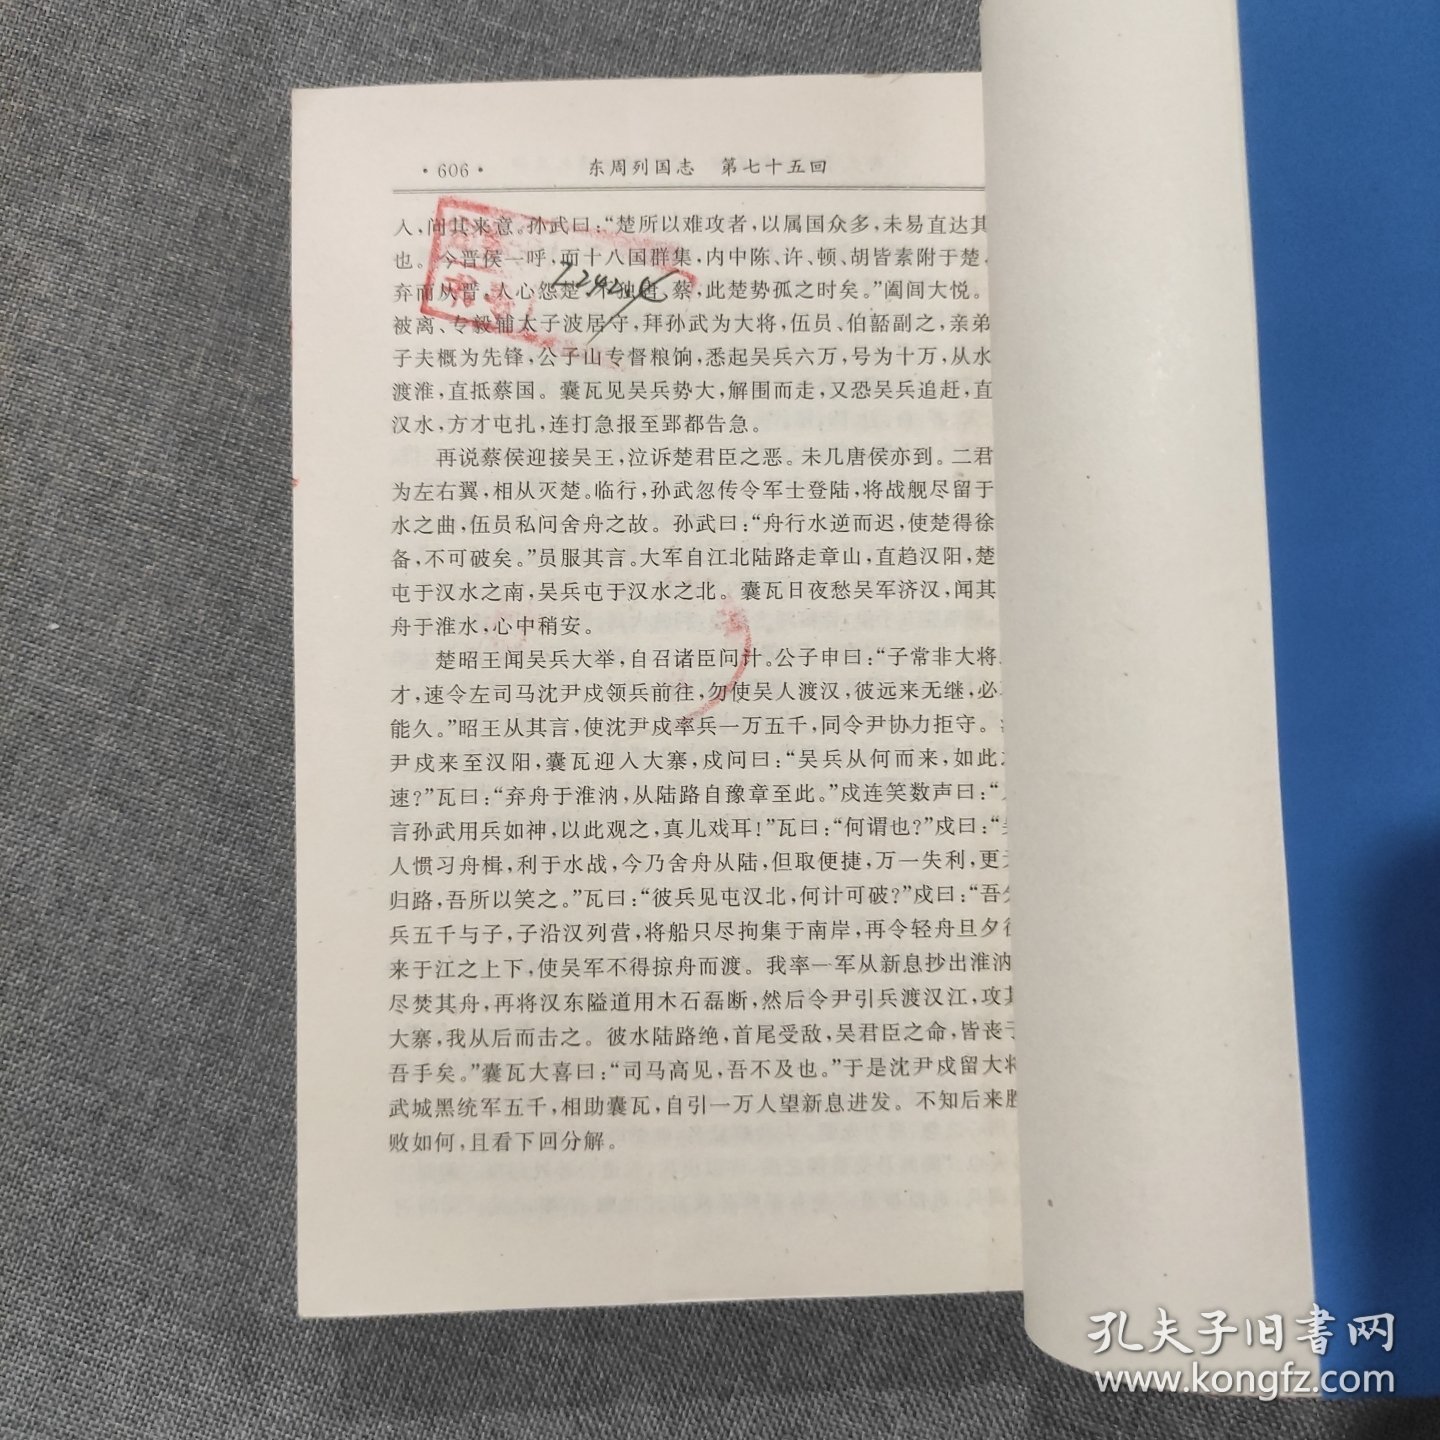 ·606· 东周列国志 第七十五回
人,问其来意。孙武曰:“楚所以难攻者,以属国众多,未易直达其
也。今晋侯一呼,而十八国群集,内中陈、许、顿、胡皆素附于楚,
弃而从晋,人心怨楚,不独唐、蔡,此楚势孤之时矣。”阖闾大悦。
被离、专毅辅太子波居守,拜孙武为大将,伍员、伯嚭副之,亲弟
子夫概为先锋,公子山专督粮饷,悉起吴兵六万,号为十万,从水
渡淮,直抵蔡国。囊瓦见吴兵势大,解围而走,又恐吴兵追赶,直
汉水,方才屯扎,连打急报至郢都告急。
再说蔡侯迎接吴王,泣诉楚君臣之恶。未几唐侯亦到。二君
为左右翼,相从灭楚。临行,孙武忽传令军士登陆,将战舰尽留于
水之曲,伍员私问舍舟之故。孙武曰:“舟行水逆而迟,使楚得徐
备,不可破矣。”员服其言。大军自江北陆路走章山,直趋汉阳,楚
屯于汉水之南,吴兵屯于汉水之北。囊瓦日夜愁吴军济汉,闻其
舟于淮水,心中稍安。
楚昭王闻吴兵大举,自召诸臣问计。公子申曰:“子常非大将
才,速令左司马沈尹戍领兵前往,勿使吴人渡汉,彼远来无继,必
能久。”昭王从其言,使沈尹戍率兵一万五千,同令尹协力拒守。
尹戍来至汉阳,囊瓦迎入大寨,戍问曰:“吴兵从何而来,如此
速?”瓦曰:“弃舟于淮汭,从陆路自豫章至此。”戍连笑数声曰:“
言孙武用兵如神,以此观之,真儿戏耳!”瓦曰:“何谓也?”戍曰:“
人惯习舟楫,利于水战,今乃舍舟从陆,但取便捷,万一失利,更
归路,吾所以笑之。”瓦曰:“彼兵见屯汉北,何计可破?”戍曰:“吾
兵五千与子,子沿汉列营,将船只尽拘集于南岸,再令轻舟旦夕
来于江之上下,使吴军不得掠舟而渡。我率一军从新息抄出淮汭
尽焚其舟,再将汉东隘道用木石磊断,然后令尹引兵渡汉江,攻
大寨,我从后而击之。彼水陆路绝,首尾受敌,吴君臣之命,皆丧
吾手矣。”囊瓦大喜曰:“司马高见,吾不及也。”于是沈尹戍留大
武城黑统军五千,相助囊瓦,自引一万人望新息进发。不知后来
败如何,且看下回分解。
孔夫子旧书网
www.kongfz.com